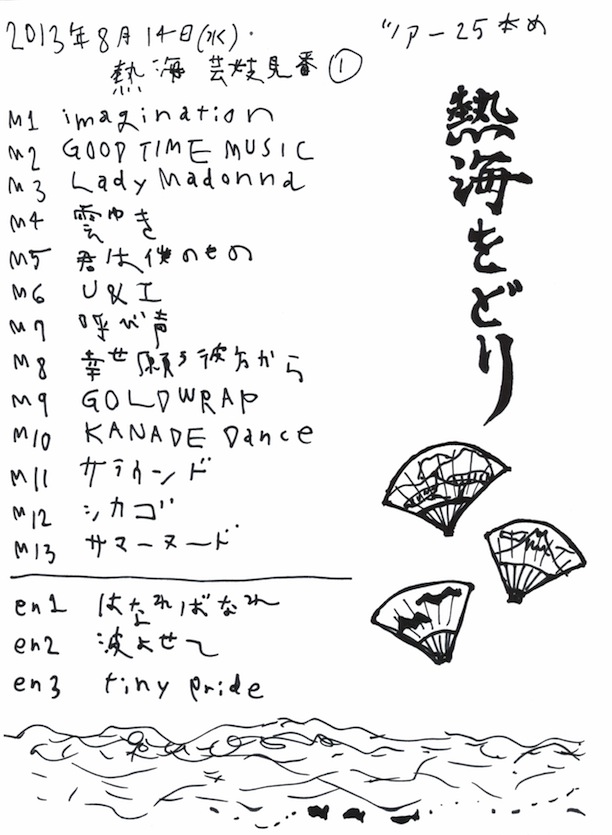 2013年8月14日(水)・ ツアー25本め
熱海 芸妓見番 ①
M1 imagination
M2 GOOD TIME MUSIC
M3 Lady Madonna
M4 雲ゆき
M5 君は僕のもの
M6 U&I
M7 呼び声
M8 幸せ願う彼方から
M9 GOLDWRAP
M10 KANADE Dance
M11 サラウンド
M12 シカゴ
M13 サマーヌード
en1 はなればなれ
en2 波よせて
en3 tiny pride
熱海をどり